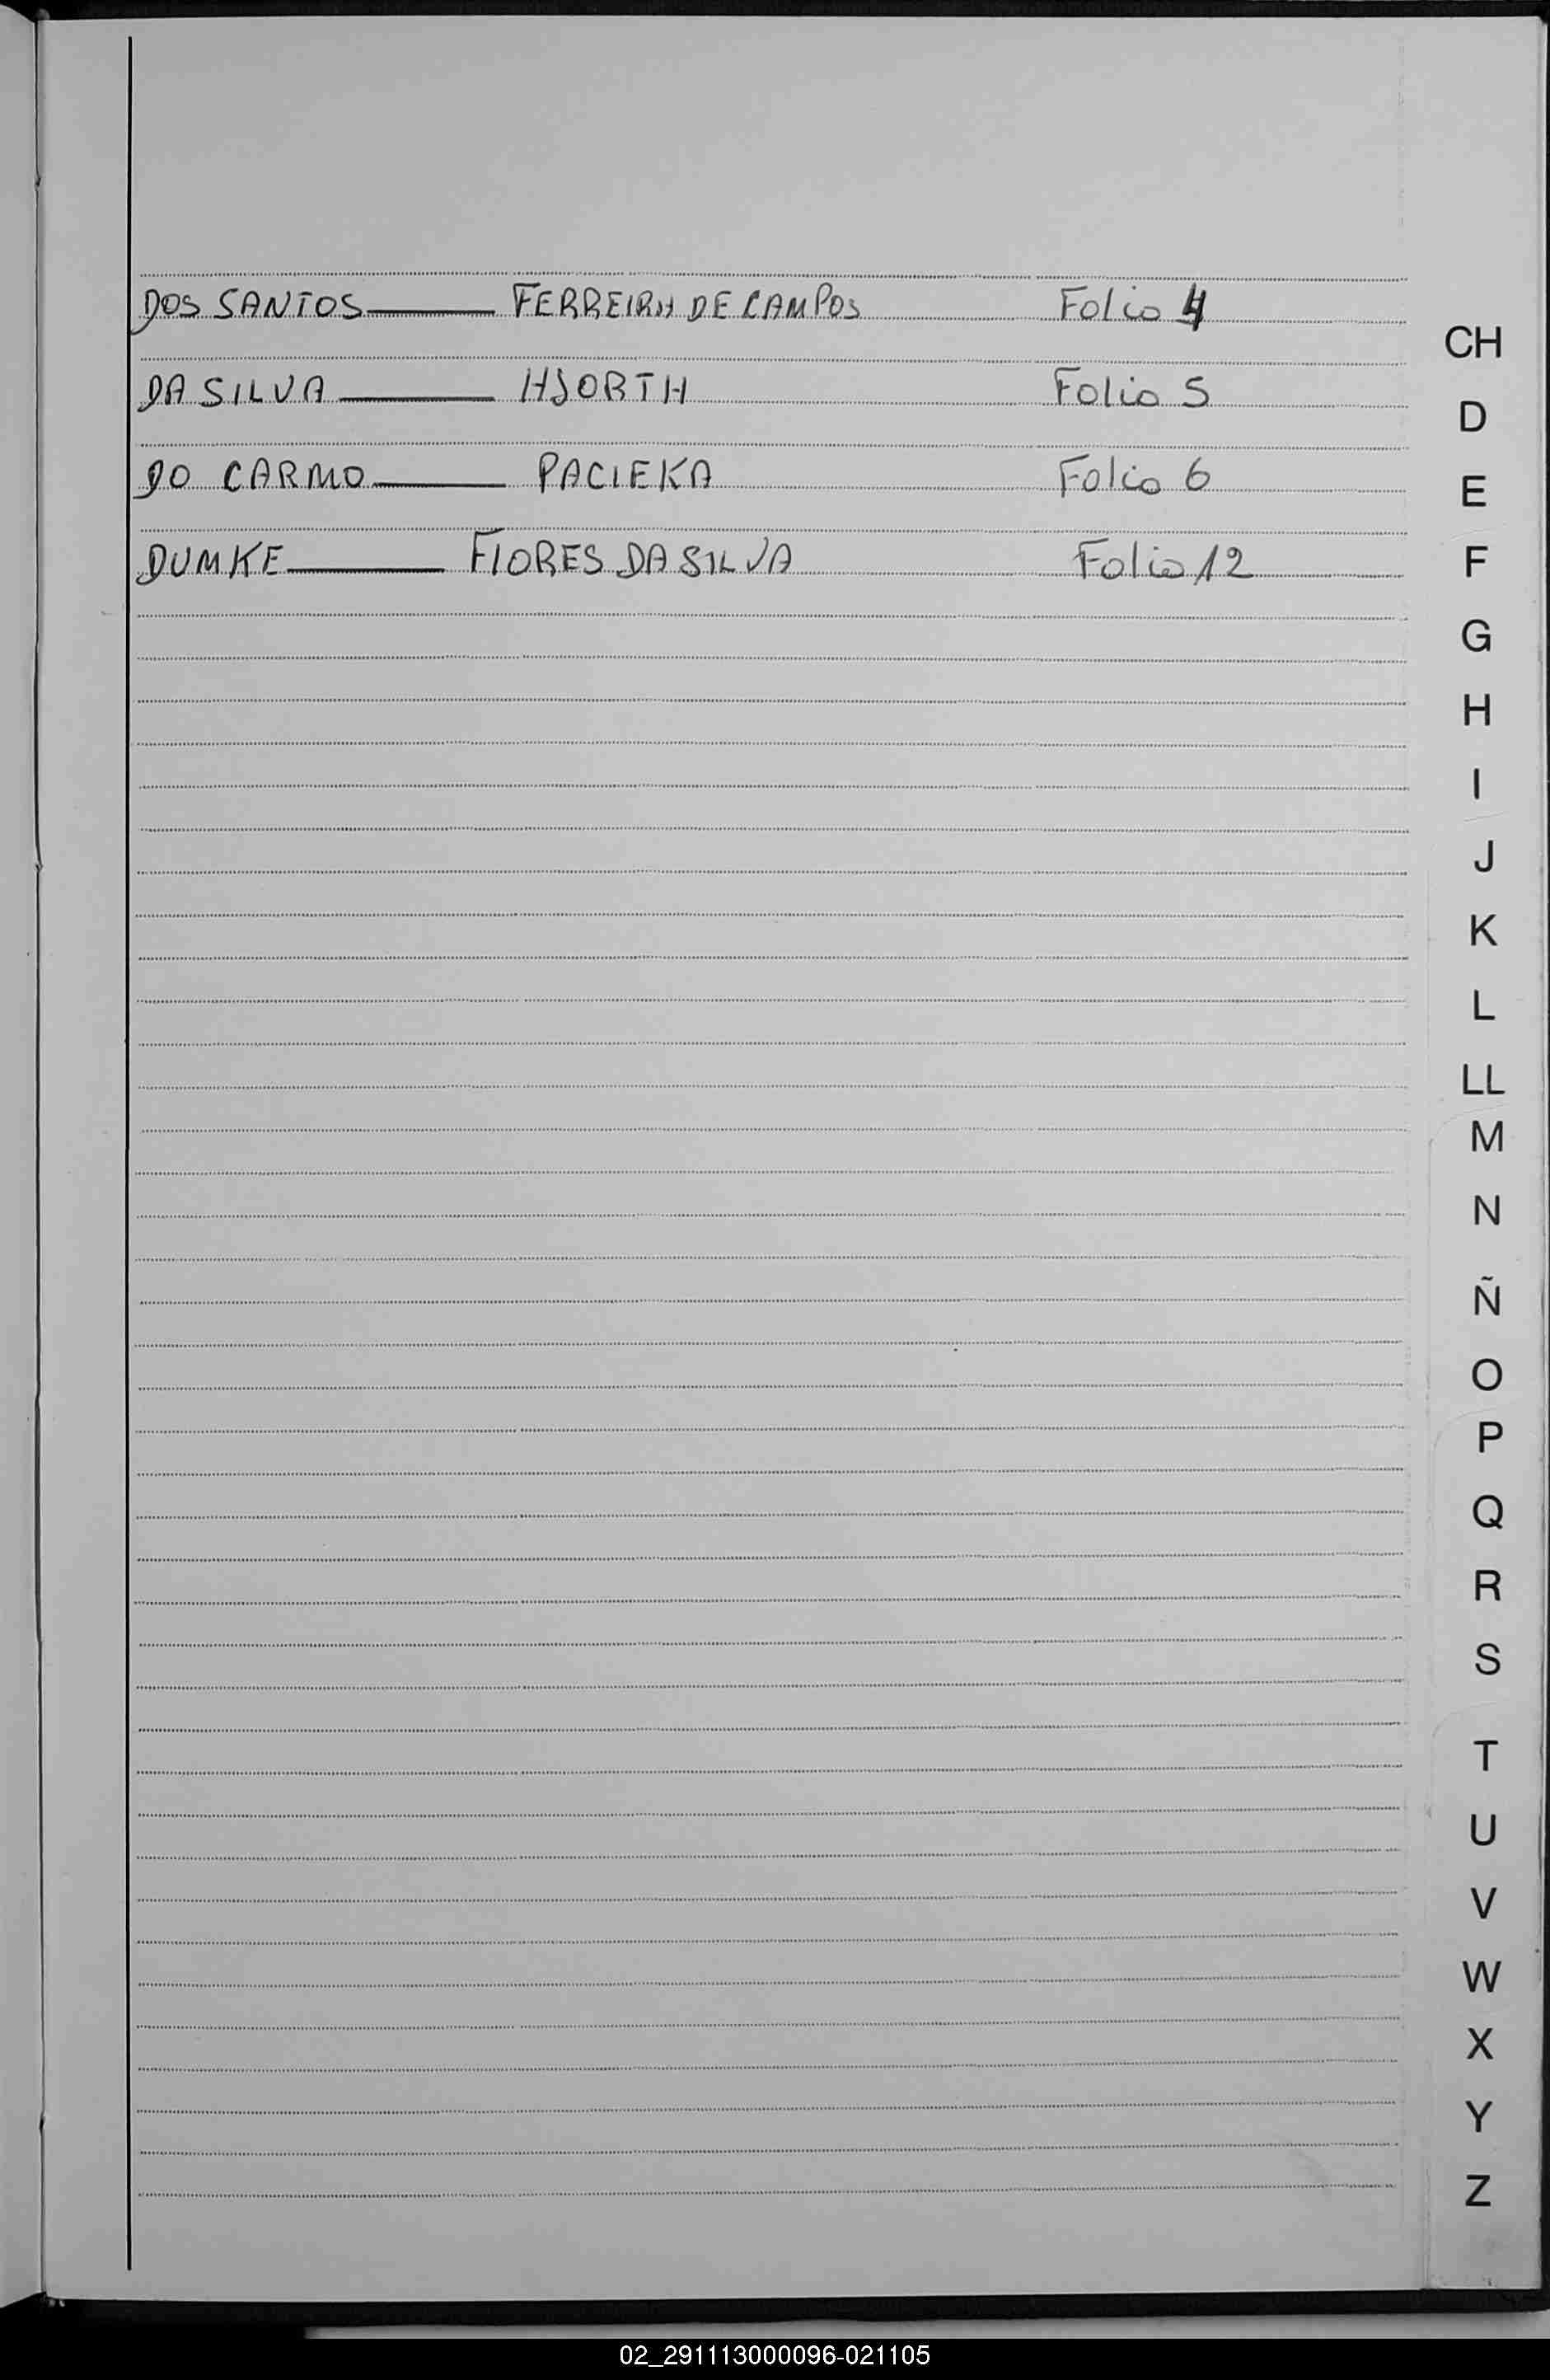 DOS SANTOS — FERREIRA DE CAMPOS Folio 4
DA SILVA — HJORTH Folio 5
DO CARMO — PACIEKA Folio 6
DUMKE — FLORES DA SILVA Folio 12
CH
D
E
F
G
H
I
J
K
L
LL
M
N
Ñ
O
P
Q
R
S
T
U
V
W
X
Y
Z
02_291113000096-021105